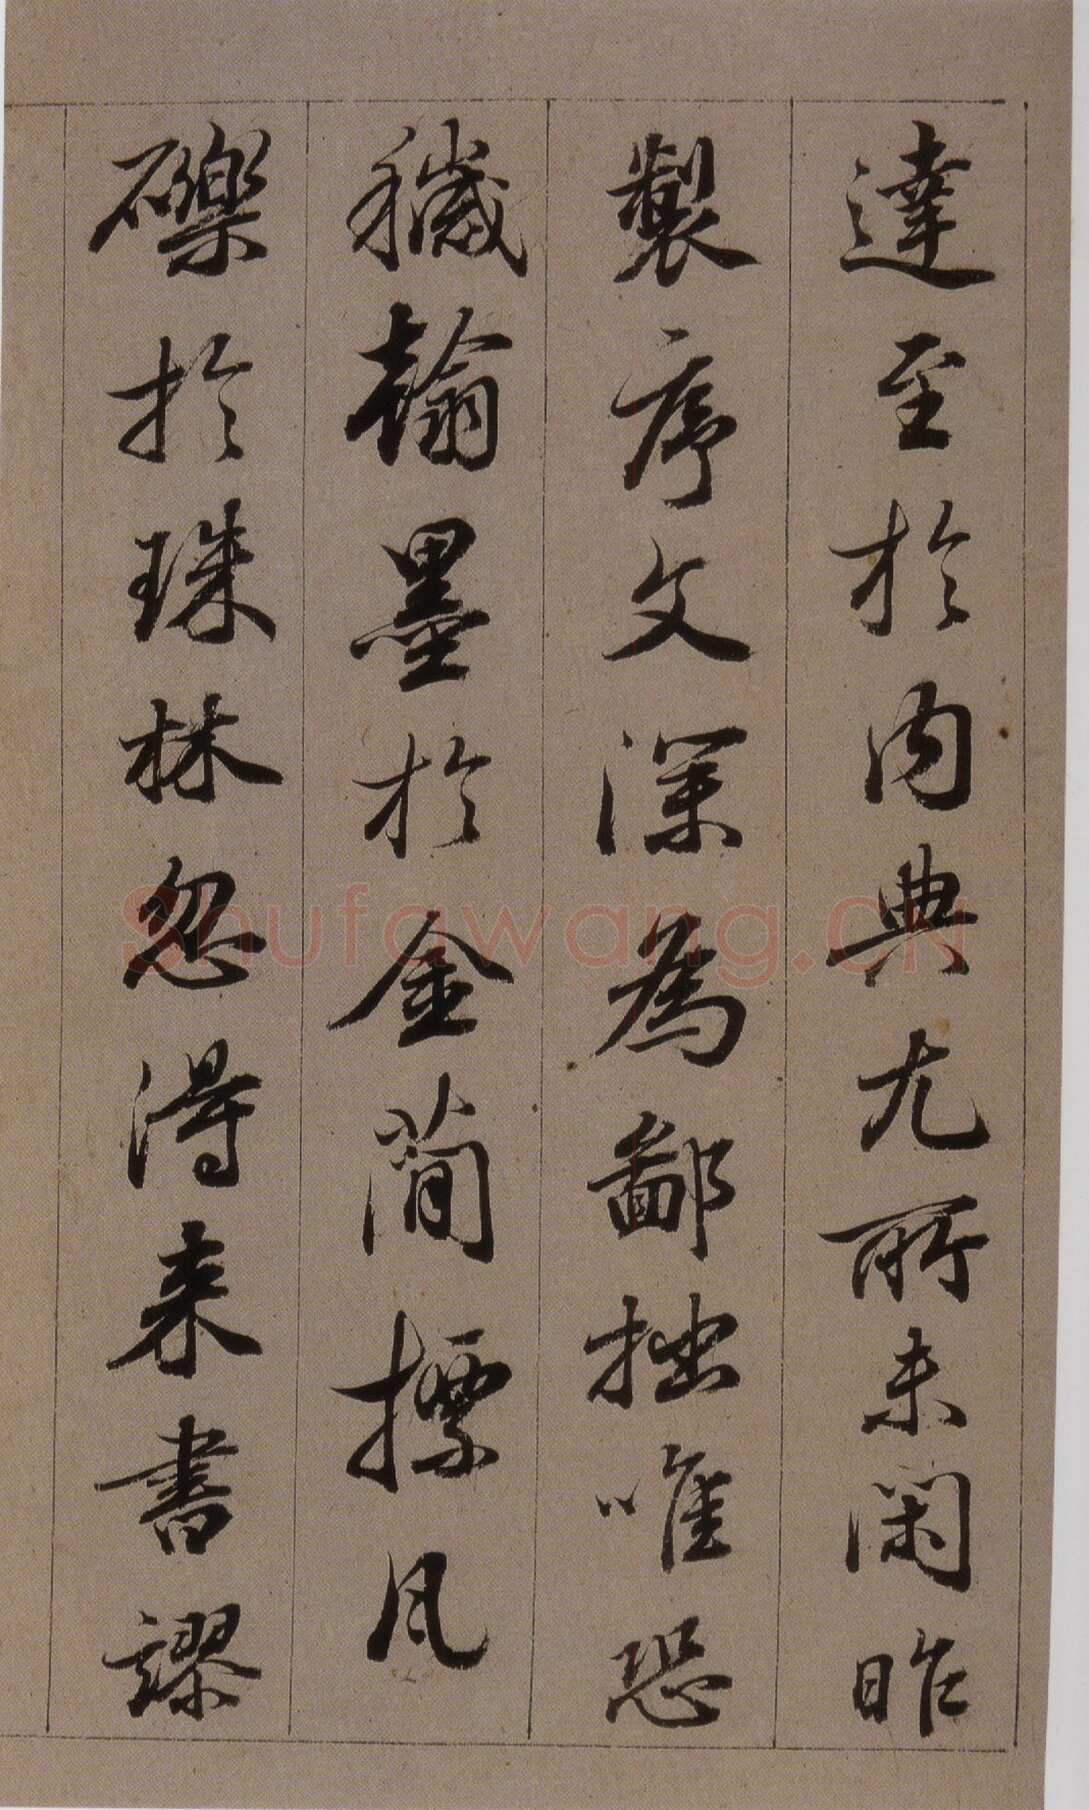 達至於内典尤所未閑昨
製序文深為鄙拙唯恐
穢翰墨於金簡標瓦
礫於珠林忽得来書謬
Shufawang.CN